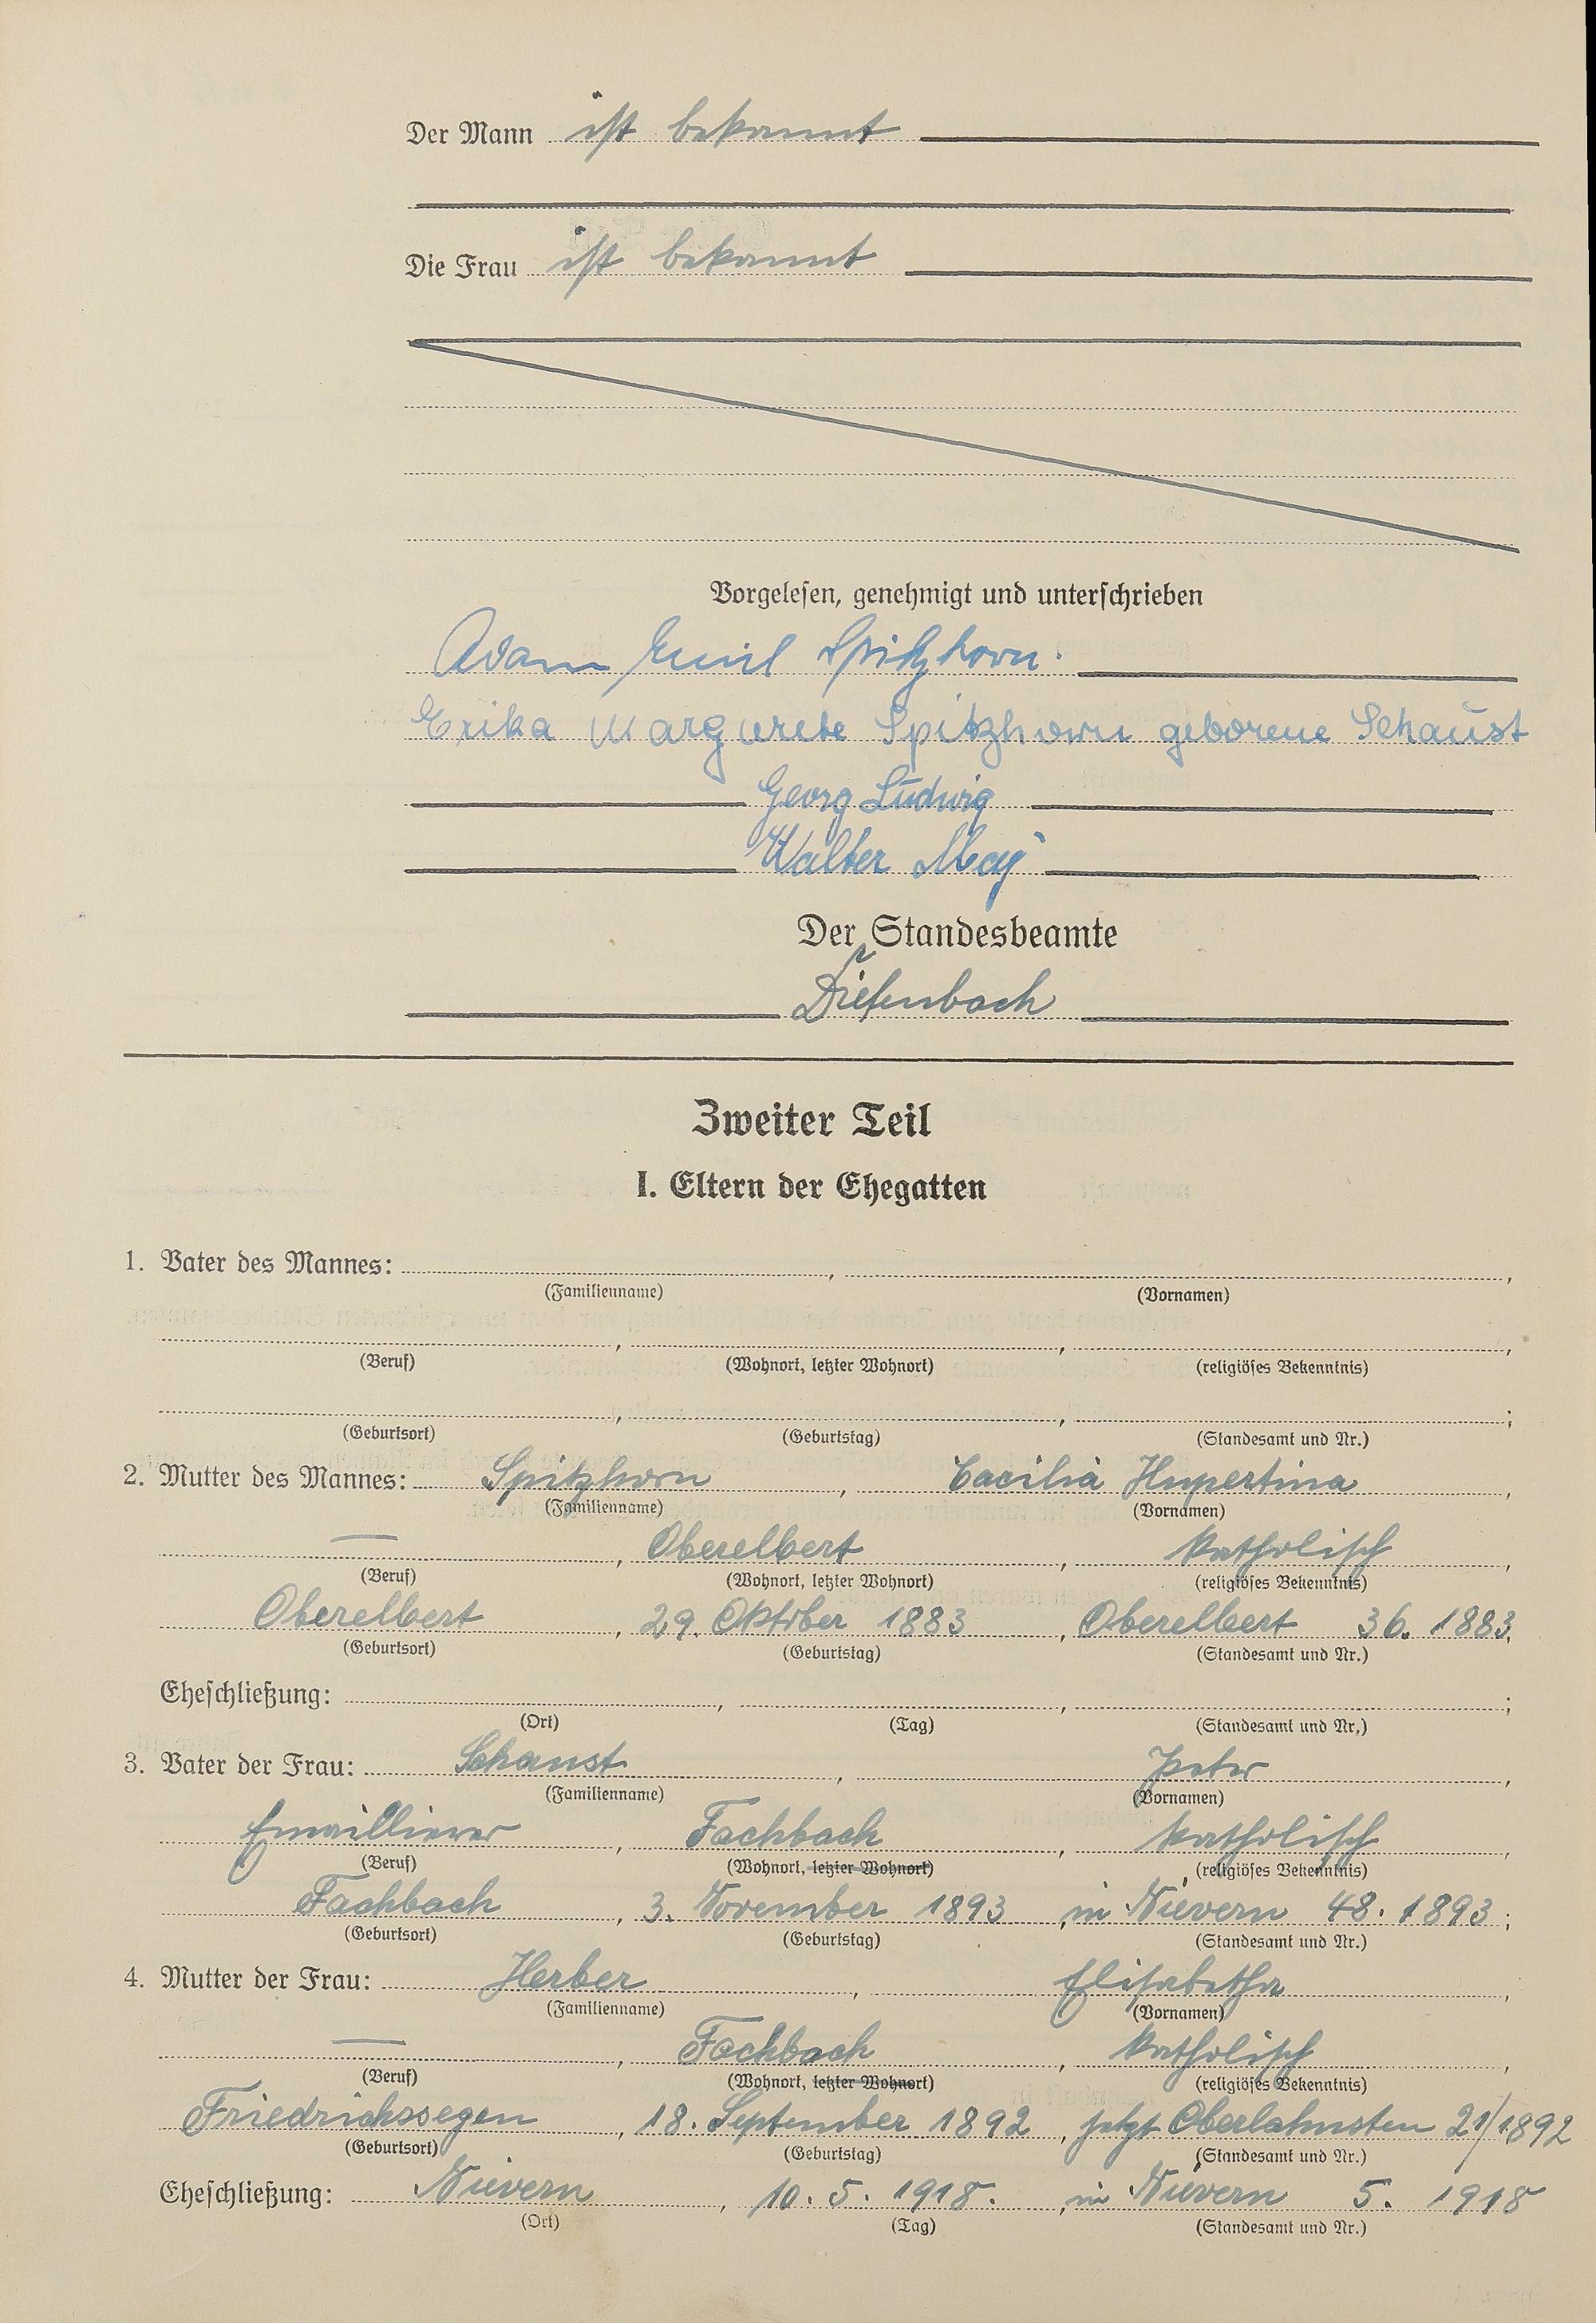 Der Mann ist bekannt
Die Frau ist bekannt
Vorgelesen, genehmigt und unterschrieben
Adam Emil Spitzhorn.
Erika Margarete Spitzhorn geborene Schaust
Georg Ludwig
Walter May
Der Standesbeamte
Diefenbach
Zweiter Teil
I. Eltern der Ehegatten
1. Vater des Mannes: , ,
(Familienname) (Vornamen)
, , ,
(Beruf) (Wohnort, letzter Wohnort) (religiöses Bekenntnis)
, , ;
(Geburtsort) (Geburtstag) (Standesamt und Nr.)
2. Mutter des Mannes: Spitzhorn , Cäcilia Hupertina ,
(Familienname) (Vornamen)
— , Oberelbert , katholisch ,
(Beruf) (Wohnort, letzter Wohnort) (religiöses Bekenntnis)
Oberelbert , 29. Oktober 1883 , Oberelbert 36. 1883;
(Geburtsort) (Geburtstag) (Standesamt und Nr.)
Eheschließung: , , ;
(Ort) (Tag) (Standesamt und Nr.)
3. Vater der Frau: Schaust , Peter ,
(Familienname) (Vornamen)
Emaillierer , Fachbach , katholisch ,
(Beruf) (Wohnort, letzter Wohnort) (religiöses Bekenntnis)
Fachbach , 3. November 1893 , in Nievern 48. 1893 ;
(Geburtsort) (Geburtstag) (Standesamt und Nr.)
4. Mutter der Frau: Herber , Elisabetha ,
(Familienname) (Vornamen)
— , Fachbach , katholisch ,
(Beruf) (Wohnort, letzter Wohnort) (religiöses Bekenntnis)
Friedrichssegen , 18. September 1892 , jetzt Oberlahnstein 21/1892
(Geburtsort) (Geburtstag) (Standesamt und Nr.)
Eheschließung: Nievern , 10. 5. 1918. , in Nievern 5. 1918
(Ort) (Tag) (Standesamt und Nr.)